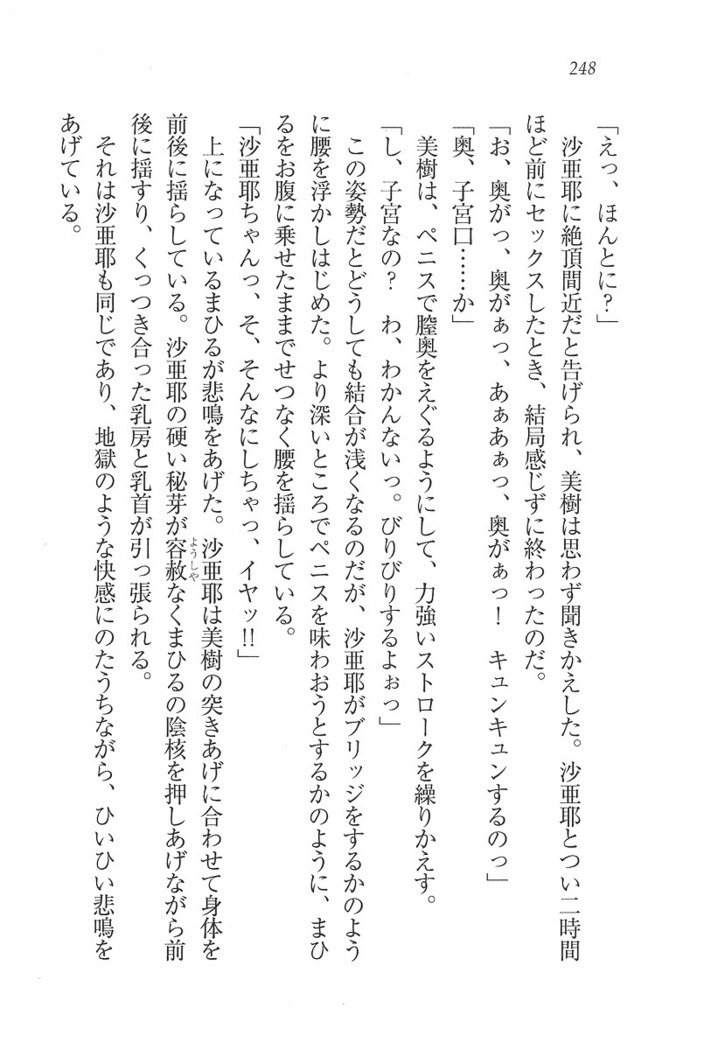 248
「えっ、ほんとに？」
沙亜耶に絶頂間近だと告げられ、美樹は思わず聞きかえした。沙亜耶とつい二時間
ほど前にセックスしたとき、結局感じずに終わったのだ。
「お、奥がっ、奥がぁっ、あぁあぁっ、奥がぁっ！　キュンキュンするのっ」
「奥、子宮口……か」
美樹は、ペニスで膣奥をえぐるようにして、力強いストロークを繰りかえす。
「し、子宮なの？　わ、わかんないっ。びりびりするよぉっ」
この姿勢だとどうしても結合が浅くなるのだが、沙亜耶がブリッジをするかのよう
に腰を浮かしはじめた。より深いところでペニスを味わおうとするかのように、まひ
るをお腹に乗せたままでせつなく腰を揺らしている。
「沙亜耶ちゃんっ、そ、そんなにしちゃっ、イヤッ!!」
上になっているまひるが悲鳴をあげた。沙亜耶は美樹の突きあげに合わせて身体を
前後に揺らしている。沙亜耶の硬い秘芽が容赦なくまひるの陰核を押しあげながら前
ようしゃ
後に揺すり、くっつき合った乳房と乳首が引っ張られる。
それは沙亜耶も同じであり、地獄のような快感にのたうちながら、ひいひい悲鳴を
あげている。